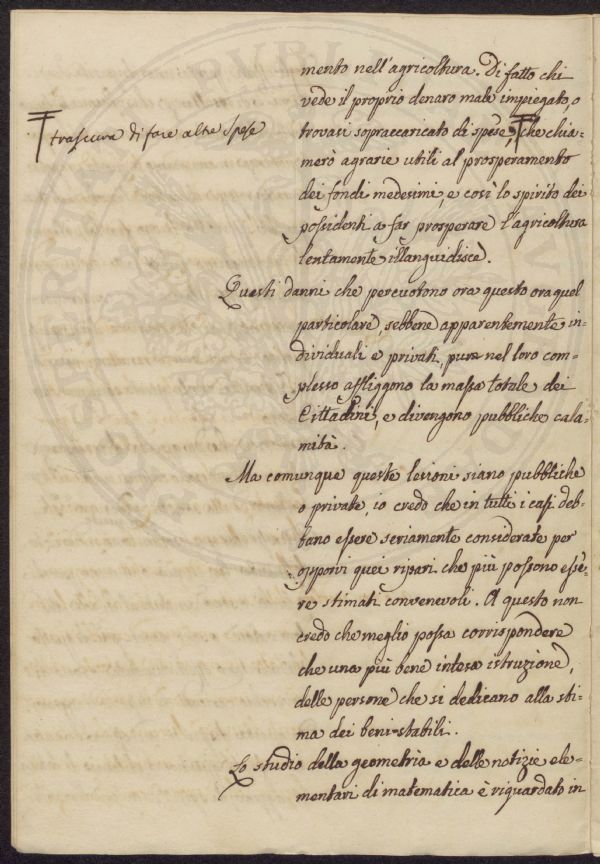 mento nell'agricoltura. Di fatto chi
vede il proprio denaro male impiegato, o
trovasi sopraccaricato di spese, ╒ che chia=
╒ trascura di fare altre spese
merò agrarie utili al prosperamento
dei fondi medesimi, e così lo spirito dei
possidenti a far prosperare l'agricoltura
lentamente illanguidisce.
Questi danni che percuotono ora questo ora quel
particolare, sebbene apparentemente in=
dividuali e privati, pure nel loro com=
plesso affliggono la massa totale dei
Cittadini, e divengono pubbliche cala=
mità.
Ma comunque queste lesioni siano pubbliche
o private, io credo che in tutti i casi deb=
bano essere seriamente considerate per
opporvi quei ripari che più possono esse=
re stimati convenevoli. A questo non
credo che meglio possa corrispondere
che una più bene intesa istruzione,
delle persone che si dedicano alla sti=
ma dei beni-stabili.
Lo studio della geometria e delle notizie ele=
mentari di matematica è riguardato in